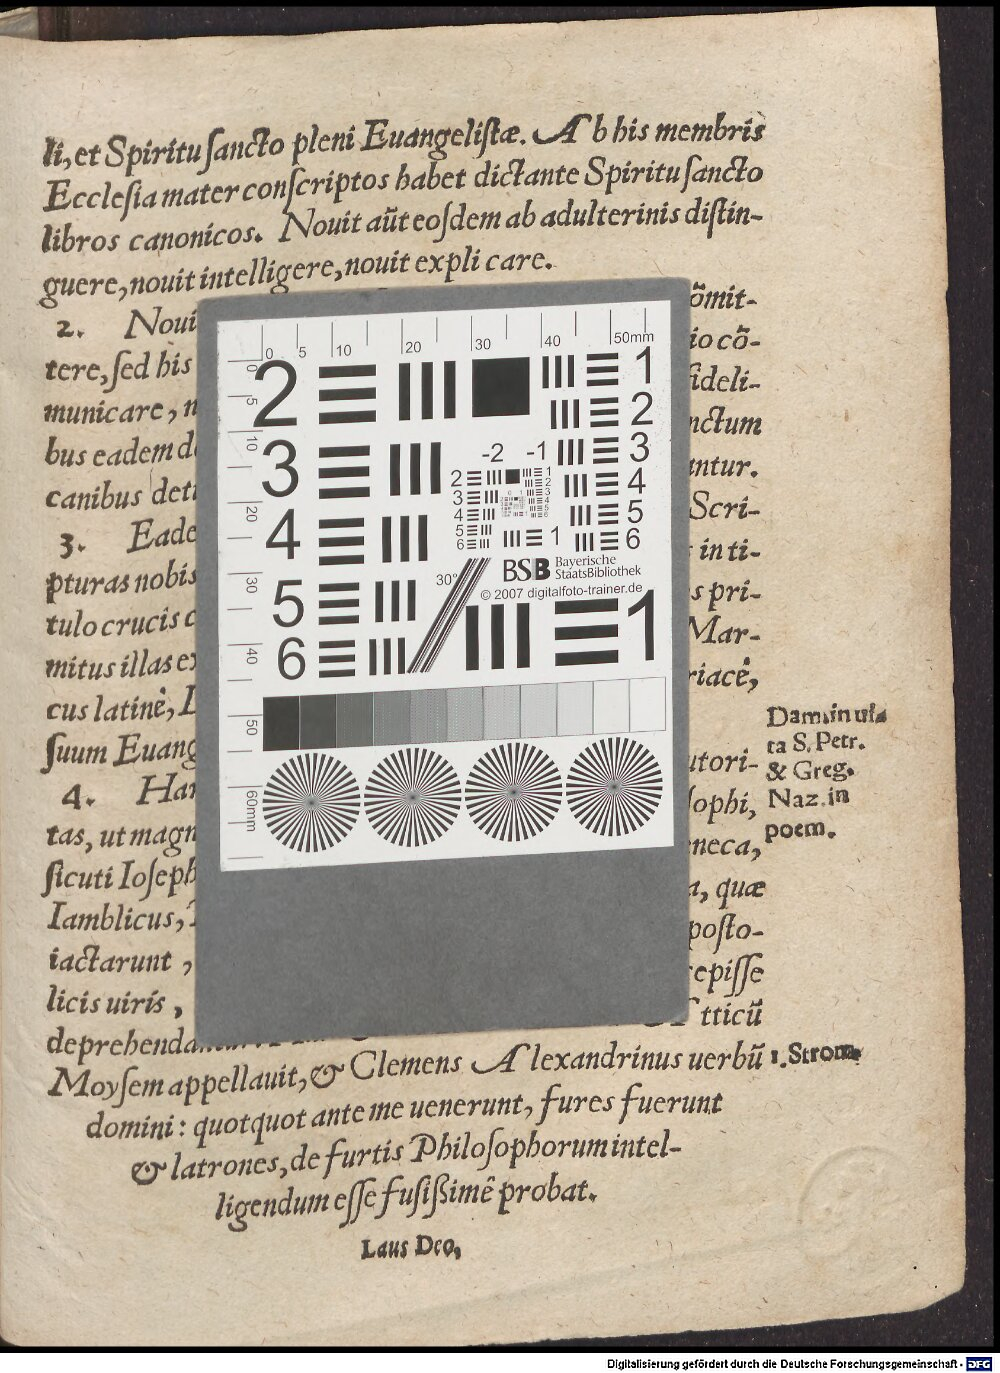 li, et Spiritu ſancto pleni Euangeliſtæ. Ab his membris
Eccleſia mater conſcriptos habet dictante Spiritu ſancto
libros canonicos. Nouit aũt eoſdem ab adulterinis diſtin-
guere, nouit intelligere, nouit expli care.
2. Noui
õmit-
tere, ſed his
io cõ-
municare, n
fideli-
bus eadem d
nctum
canibus det
antur.
3. Eade
Scri-
pturas nobis
in ti-
tulo crucis c
s pri-
mitus illas ex
Mar-
cus latinè, L
riacè,
ſuum Euang
4. Har
utori-
tas, ut magn
loſophi,
ſicuti Ioſeph
eneca,
Iamblicus,
a, quæ
iactarunt,
poſto-
licis uiris,
cepiſſe
deprehenda
tticũ
Moyſem appellauit, & Clemens Alexandrinus uerbũ
domini: quotquot ante me uenerunt, fures fuerunt
& latrones, de furtis Philoſophorum intel-
ligendum eſſe fuſißimè probat.
Laus Deo,
ta S. Petr.
& Greg.
Naz. in
poem.
1. Strom.
0 5 10 20 30 40 50mm
0 5 10 20 30 40 50 60mm
2
3
4
5
6
1
2
3
4
5
6
-2 -1
2
3
4
5
6
1
2
3
4
5
6
1
30°
BSB Bayerische
StaatsBibliothek
© 2007 digitalfoto-trainer.de
1
Digitalisierung gefördert durch die Deutsche Forschungsgemeinschaft - DFG